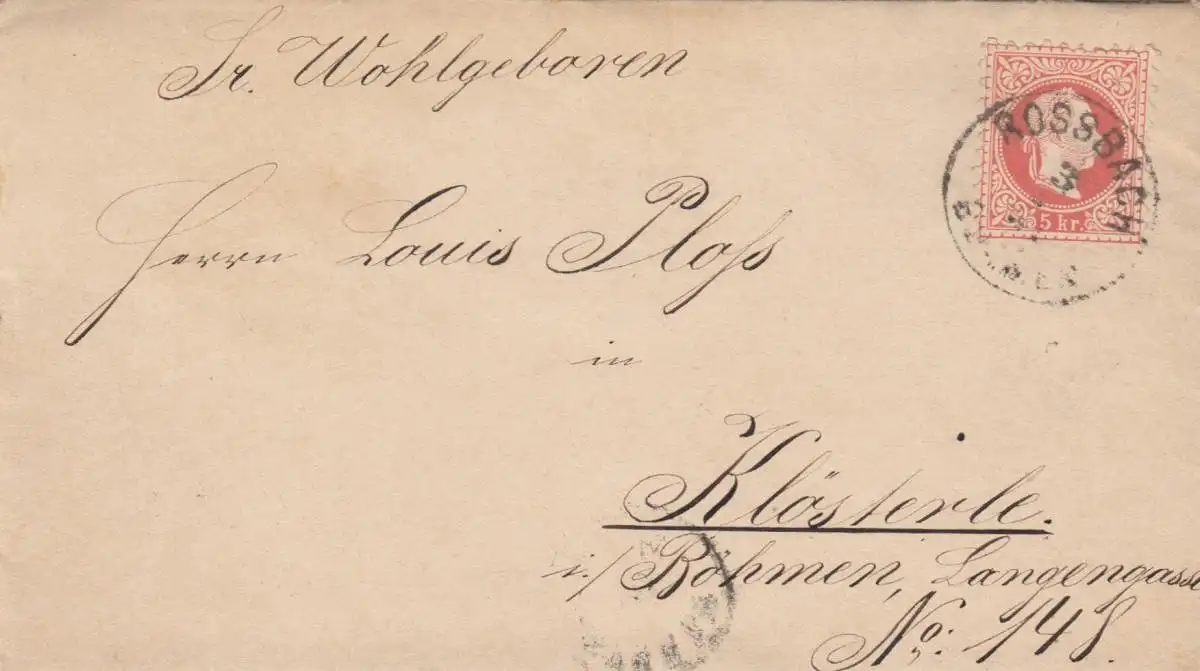 Sr. Wohlgeboren
Herrn Louis Ploß
in
Klösterle.
i./ Böhmen, Langengasse
No: 148.
ROSSBACH
3
5 kr.